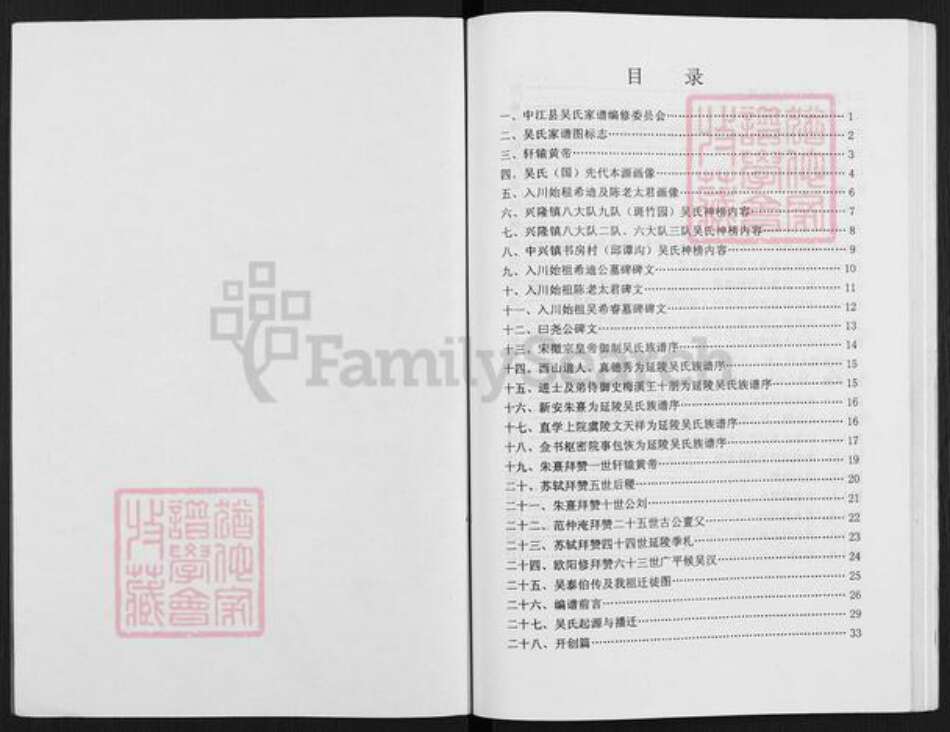 目 录
一、中江县吴氏家谱编修委员会 1
二、吴氏家谱图标志 2
三、轩辕黄帝 3
四、吴氏（国）先代本源画像 4
五、入川始祖希逵及陈老太君画像 6
六、兴隆镇八大队九队（斑竹园）吴氏神榜内容 7
七、兴隆镇八大队二队、六大队三队吴氏神榜内容 8
八、中兴镇书房村（邱谭沟）吴氏神榜内容 9
九、入川始祖希逵公墓碑碑文 10
十、入川始祖陈老太君碑文 11
十一、入川始祖吴希睿墓碑碑文 12
十二、曰尧公碑文 13
十三、宋徽宗皇帝御制吴氏族谱序 14
十四、西山道人、真德秀为延陵吴氏族谱序 15
十五、进士及弟侍御史梅溪王十朋为延陵吴氏族谱序 15
十六、新安朱熹为延陵吴氏族谱序 16
十七、直学上院虞陵文天祥为延陵吴氏族谱序 16
十八、佥书枢密院事包恢为延陵吴氏族谱序 17
十九、朱熹拜赞一世轩辕黄帝 19
二十、苏轼拜赞五世后稷 20
二十一、朱熹拜赞十世公刘 21
二十二、范仲淹拜赞二十五世古公亶父 22
二十三、苏轼拜赞四十四世延陵季札 23
二十四、欧阳修拜赞六十三世广平候吴汉 24
二十五、吴泰伯传及我祖迁徒图 25
二十六、编谱前言 26
二十七、吴氏起源与播迁 29
二十八、开创篇 33
FamilySearch
譜學會
收藏